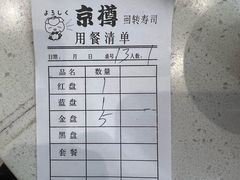 よろしく
京樽 回转寿司
用餐清单
日期: 月 日 桌号 13 人数: 1
品名 数量
红盘 1
蓝盘 1
金盘 5
黑盘
套餐